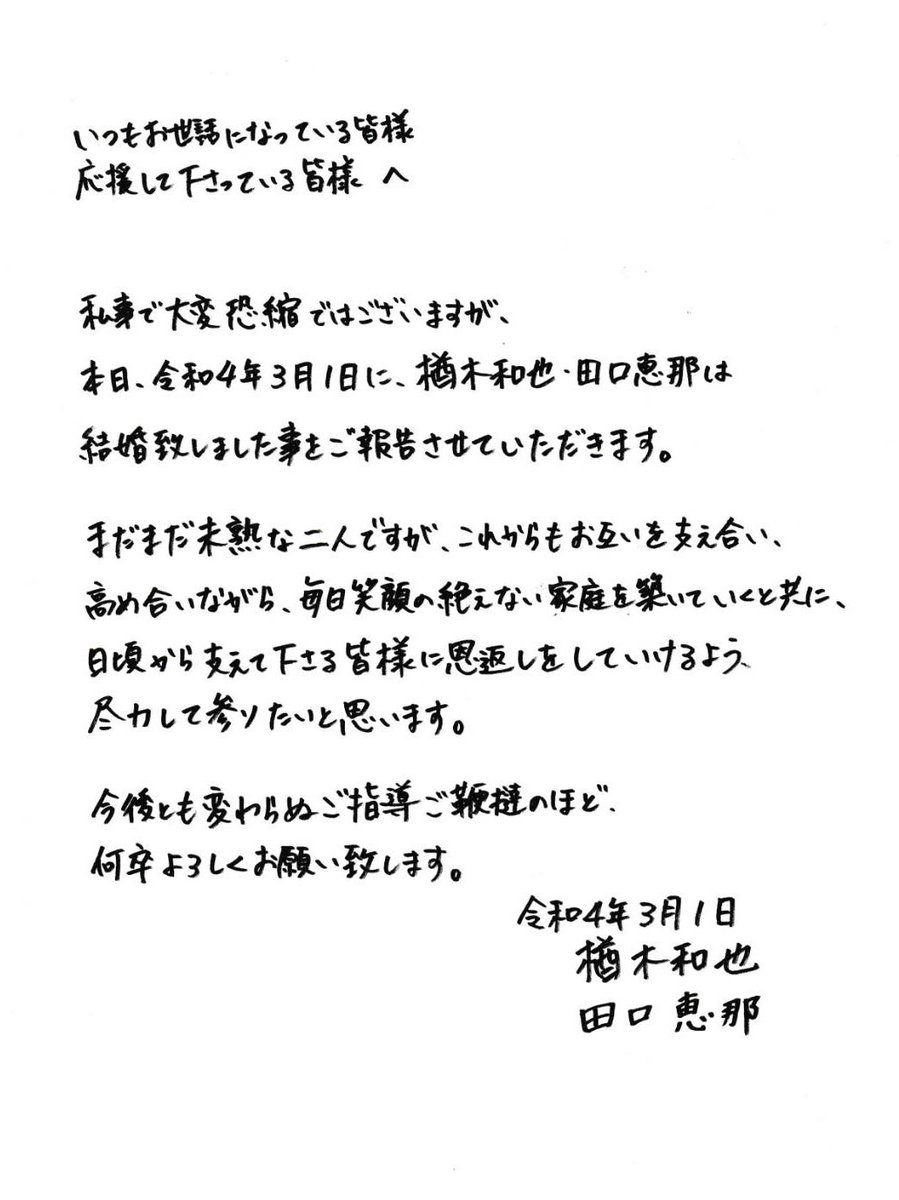 いつもお世話になっている皆様
応援して下さっている皆様 へ
私事で大変恐縮ではございますが、
本日、令和4年3月1日に、楢木和也・田口恵那は
結婚致しました事をご報告させていただきます。
まだまだ未熟な二人ですが、これからもお互いを支え合い、
高め合いながら、毎日笑顔の絶えない家庭を築いていくと共に、
日頃から支えて下さる皆様に恩返しをしていけるよう、
尽力して参りたいと思います。
今後とも変わらぬご指導ご鞭撻のほど、
何卒よろしくお願い致します。
令和4年3月1日
楢木和也
田口恵那